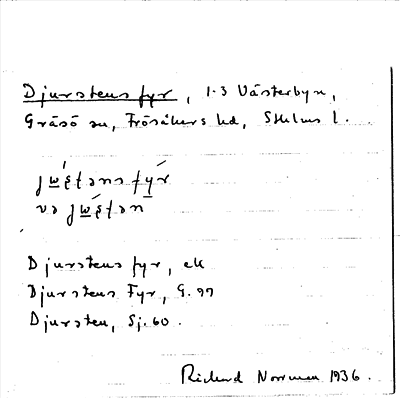 Djurstens fyr, 1.3 Västerbyn,
Gräsö sn, Frösåkers hd, Sthlms l.
fýr
və
Djurstens fyr, ek
Djurstens Fyr, G. 99
Djursten, Sj. 60.
Richard Norrman 1936.